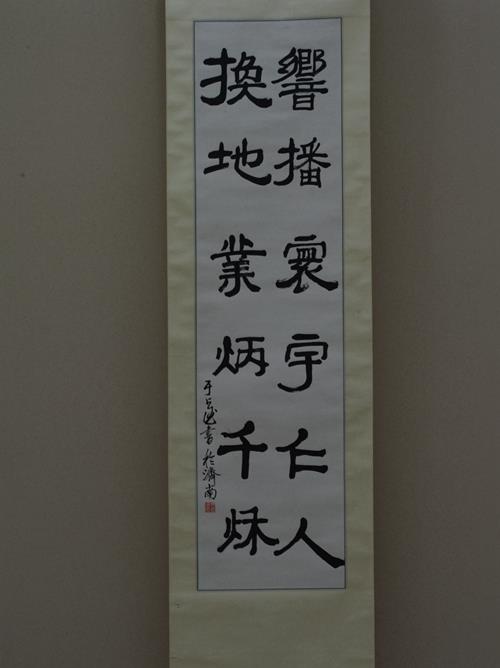 響播寰宇仁人
換地業炳千秌
于 書於濟南